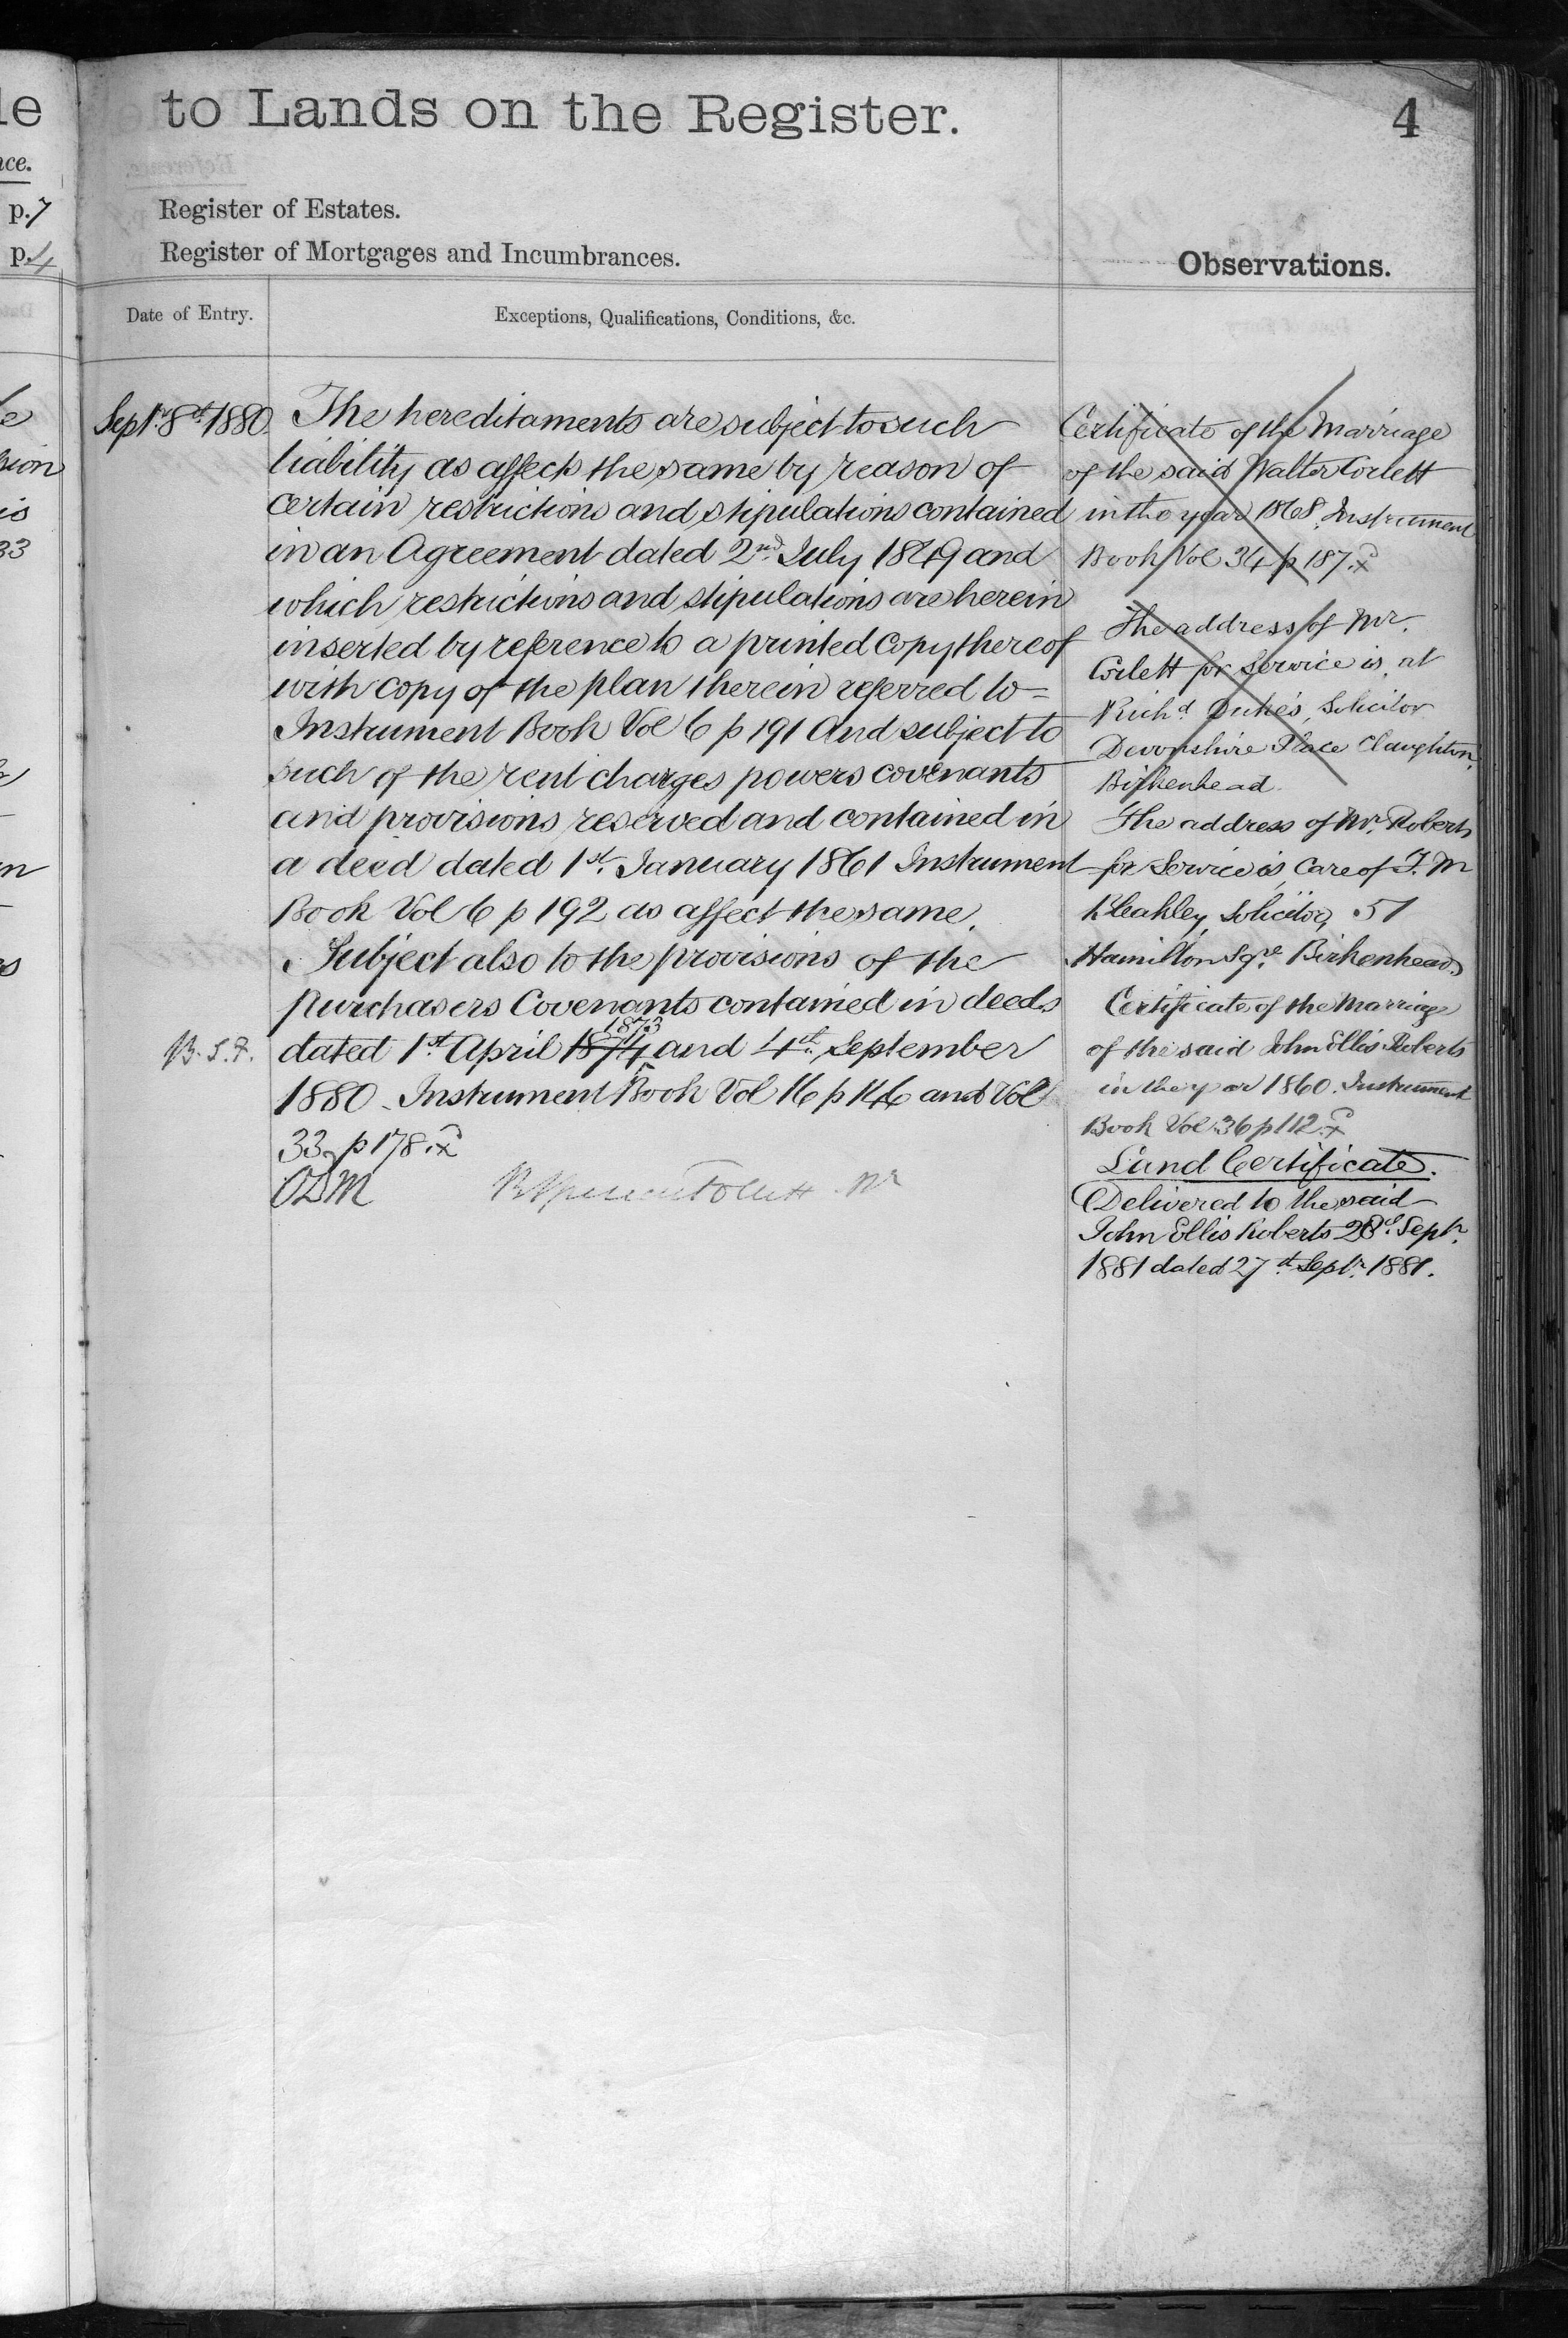 le
nce.
p. 7
p. 4
sion
is
33
to Lands on the Register.
4
Register of Estates.
Register of Mortgages and Incumbrances.
Observations.
Date of Entry.
Exceptions, Qualifications, Conditions, &c.
Septr. 8th 1880.
The hereditaments are subject to such
liability as affects the same by reason of
certain restrictions and stipulations contained
in an Agreement dated 2nd July 1849 and
which restrictions and stipulations are herein
inserted by reference to a printed Copy thereof
with copy of the plan therein referred to =
Instrument Book Vol 6 p 191 And subject to
such of the rent charges powers covenants
and provisions reserved and contained in
a deed dated 1st. January 1861 Instrument
Book Vol 6 p 192 as affect the same.
Subject also to the provisions of the
Purchasers Covenants contained in deeds
1873
dated 1st. April 1874 and 4th. September
1880. Instrument Book Vol 16 p 146 and Vol
33 p 178.
Certificate of the Marriage
of the said Walter Corlett
in the year 1868. Instrument
Book Vol 34 p 187.
The address of Mr.
Corlett for service is at
Richd. Duke's, Solicitor
Devonshire Place Claughton,
Birkenhead.
The address of Mr. Roberts
for Service is, Care of T. M
Bleakley, Solicitor, 51
Hamilton Sqre. Birkenhead.
Certificate of the Marriage
of the said John Ellis Roberts
in the year 1860. Instrument
Book Vol 36 p 112.
Land Certificate.
Delivered to the said
John Ellis Roberts 28th Septr.
1881 dated 27th Septr. 1881.